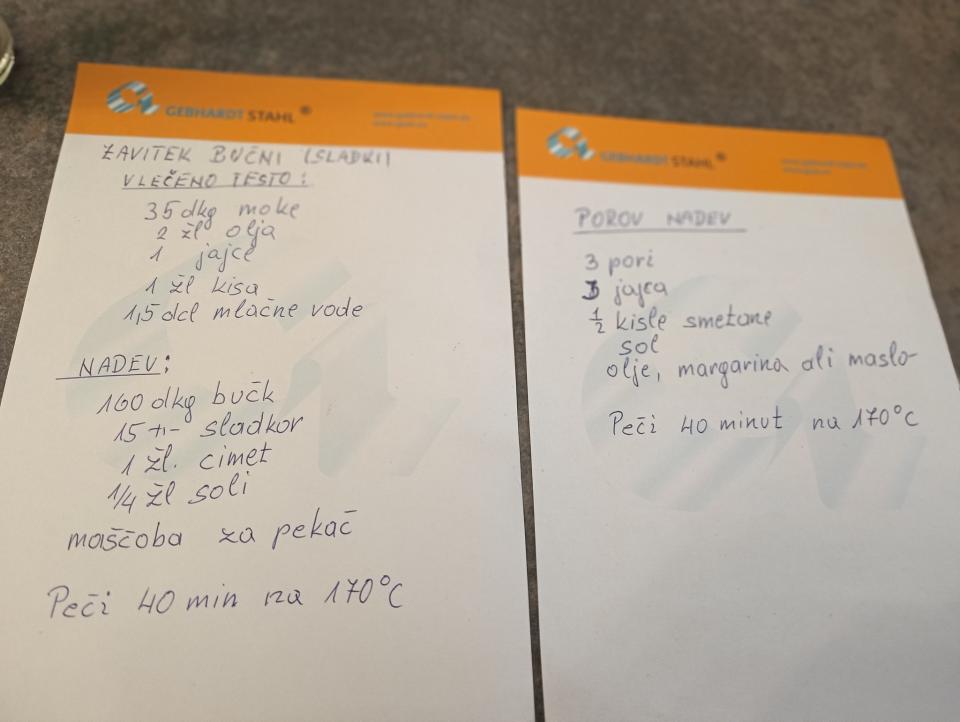 GEBHARDT STAHL®
ZAVITEK BUČNI (SLADKI)
VLEČENO TESTO:
35 dkg moke
2 žl olja
1 jajce
1 žl kisa
1,5 dcl mlačne vode
NADEV:
160 dkg bučk
15 -"- sladkor
1 žl. cimet
1/4 žl soli
maščoba za pekač
Peči 40 min na 170°C
GEBHARDT STAHL®
POROV NADEV
3 pori
3 jajca
1/2 kisle smetane
sol
olje, margarina ali maslo
Peči 40 minut na 170°C